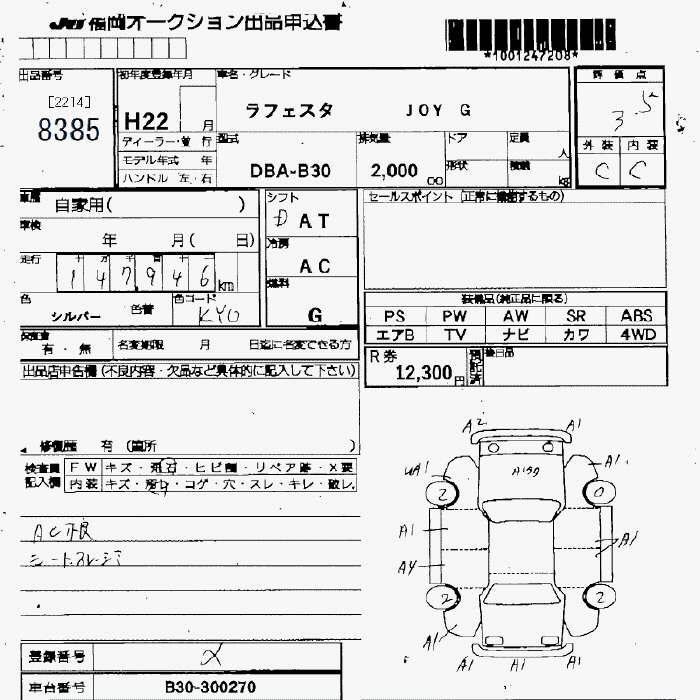 JU 福岡オークション出品申込書
*1001247208*
出品番号
[2214]
8385
初年度登録年月
H22 月
車名・グレード
ラフェスタ JOY G
評価点
3.5
外装 内装
C C
ディーラー・並行
モデル年式 年
ハンドル 左・右
型式
DBA-B30
排気量
2,000 cc
ドア
定員
人
形状
積載
kg
車歴
自家用( )
車検
年 月( 日)
走行
十 万 千 百 十 一
1 4 7 9 4 6 km
色
シルバー
色替
色コード
KY0
シフト
D AT
冷房
AC
燃料
G
セールスポイント (正常に機能するもの)
装備品(純正品に限る)
PS PW AW SR ABS
エアB TV ナビ カワ 4WD
有・無
名変期限 月 日迄に名変できる方
R券
12,300円
預託済
後日品
出品店申告欄(不良内容・欠品など具体的に記入して下さい)
修復歴 有 (箇所 )
検査員記入欄
FW キズ・飛石・ヒビ割・リペア跡・X要
内装 キズ・汚れ・コゲ・穴・スレ・キレ・破レ
AC不良
A2 A1
A1
A1
2 0
A1
A4
2 2
A1
A1 A1 A1
登録番号
車台番号 B30-300270